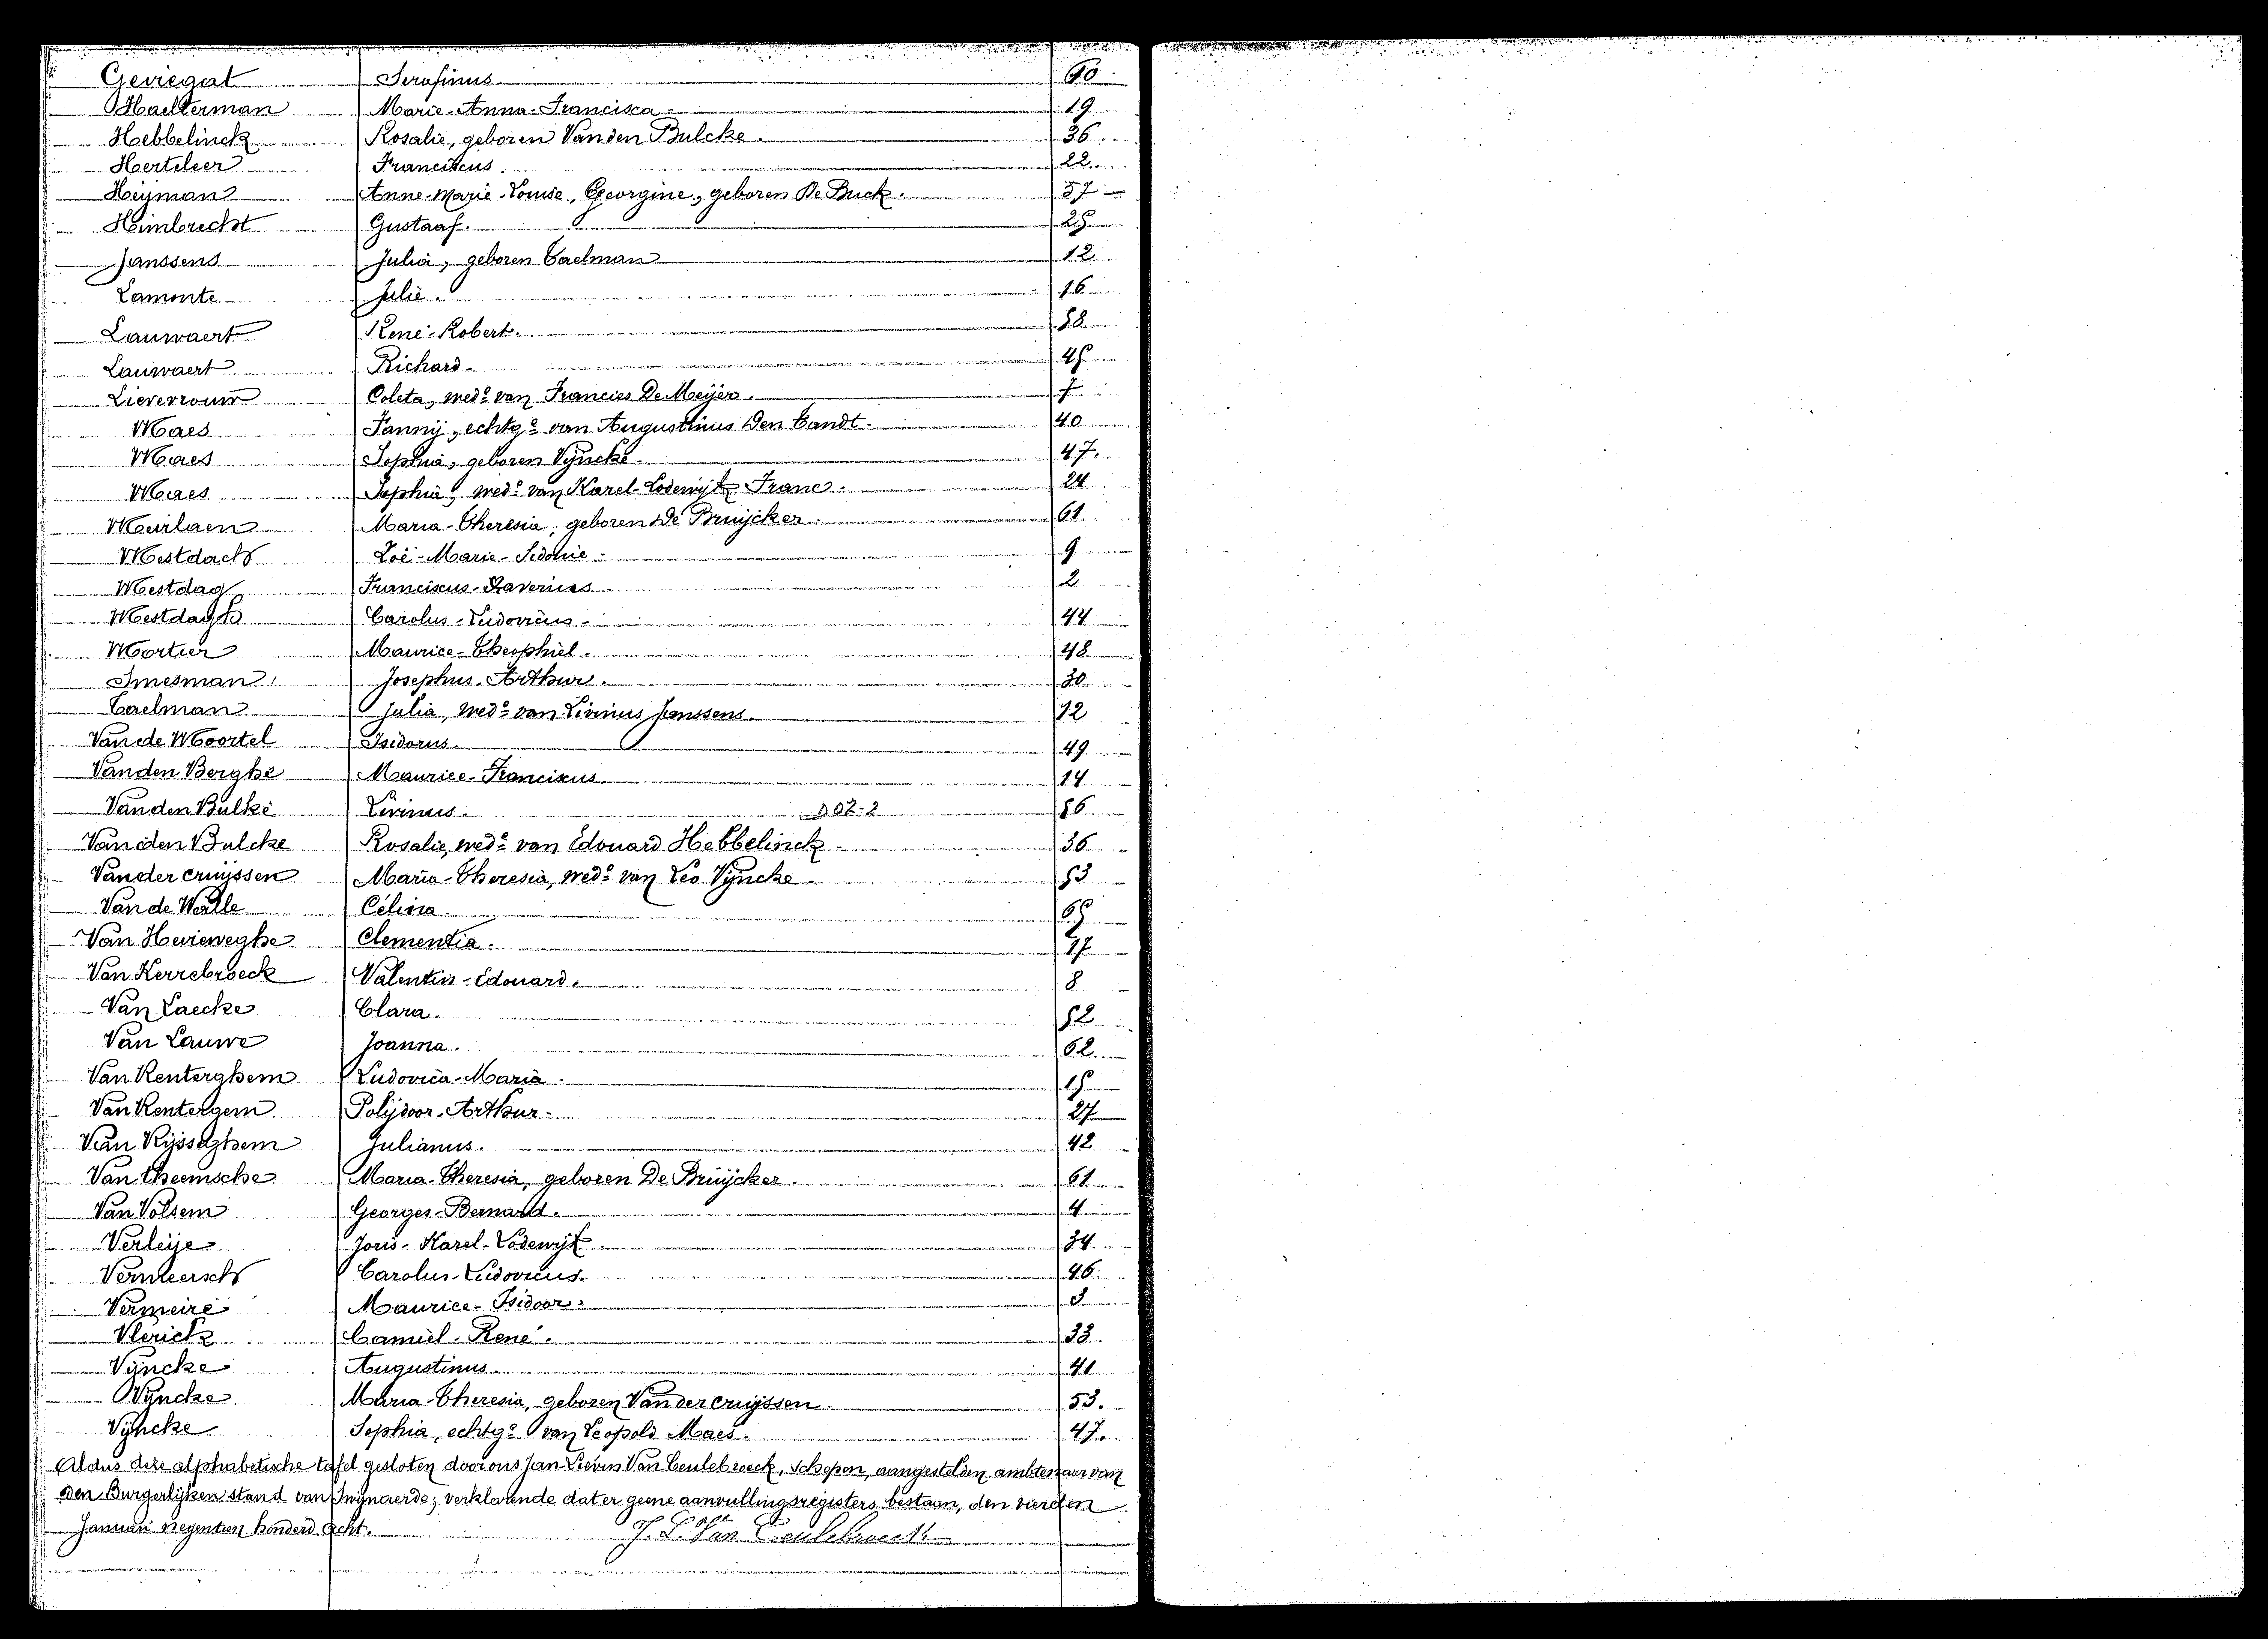 Geviegat Serafinus 60
Haelterman Marie-Anna-Francisca 19
Hebbelinck Rosalie, geboren Vanden Bulcke. 36
Herteleer Franciscus. 22
Heyman Anne-Marie-Louise, Georgine, geboren De Buck. 37
Heimbrecht Gustaaf. 25
Janssens Julia, geboren Taelman 12
Lamonte Julie. 16
Lauwaert René-Robert. 58
Lauwaert Richard. 45
Lieverrouw Coleta, wede van Francies De Meijer. 7
Maes Fanny, echtge van Augustinus Den Tandt. 40
Maes Sophia, geboren Vyncke. 47.
Maes Sophia, wede van Karel-Lodewijk Franc. 24
Meirlaen Maria-Theresia, geboren De Bruijcker. 61.
Mestdach Zoë-Marie-Sidonie. 9
Mestdag Franciscus-Xaverius 2
Mestdagh Carolus-Ludovicus 44
Mortier Maurice-Theophiel. 48
Smesman Josephus-Arthur. 30
Taelman Julia, wede van Livinus Janssens. 12
Van de Moortel Isidorus. 49
Vanden Berghe Maurice-Franciscus. 14
Vanden Bulke Livinus. 56
Vanden Bulcke Rosalie, wede van Edouard Hebbelinck 36
Vander cruijssen Maria-Theresia, wede van Leo Vyncke. 53
Van de Walle Célina. 65
Van Heuverweghe Clementia. 27
Van Kerrebroeck Valentin-Edouard. 8
Van Laecke Clara. 52
Van Lauwe Joanna. 62
Van Renterghem Ludovica-Maria. 15
Van Rentergem Polijdoor-Arthur. 27
Van Rijsseghem Julianus. 42
Van theemsche Maria-Theresia, geboren De Bruijcker. 61
Van Volsem Georges-Bernard. 4
Verleije Joris-Karel-Lodewijk. 34
Vermeersch Carolus-Ludovicus. 46
Vermeire Maurice-Isidoor. 3
Vlerick Camiel-René. 33
Vyncke Augustinus 41
Vyncke Maria-Theresia, geboren Vander cruijssen. 53.
Vyncke Sophia, echtge van Leopold Maes. 47.
Aldus deze alphabetische tafel gesloten door ons Jan Lievin Van Ceulebroeck, Schepen, aangestelden ambtenaar van
den Burgerlijken stand van Swijnaerde, verklarende dat er geene aanvullingsregisters bestaan, den vierden
Januari negentien honderd acht.
J. L. Van Ceulebroeck